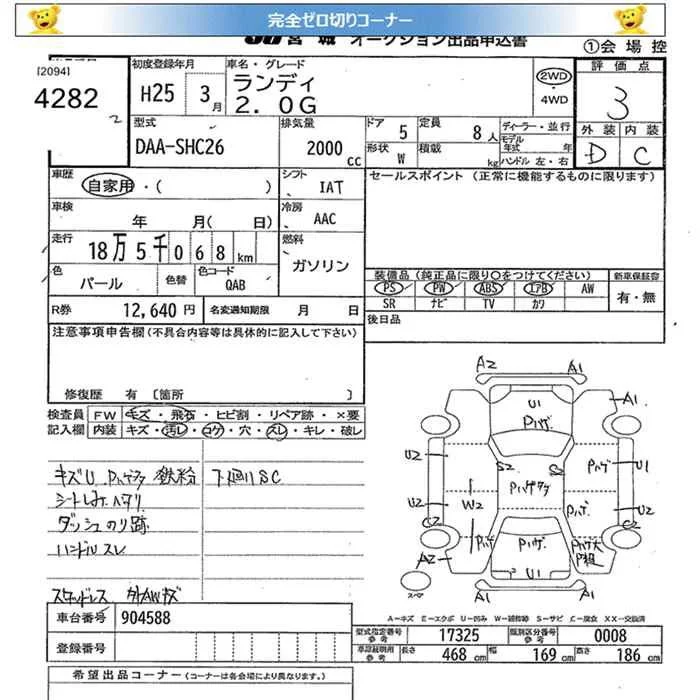 完全ゼロ切りコーナー
JU 宮城 オークション出品申込書
①会場控
[2094]
4282
2
初度登録年月
H25 3月
車名・グレード
ランディ
2.0G
2WD
・
4WD
評価点
3
外装 内装
D C
型式
DAA-SHC26
排気量
2000 cc
ドア 5
形状 W
定員 8人
積載 kg
ディーラー・並行
モデル年式 年
ハンドル 左・右
車歴
自家用・( )
シフト
IAT
セールスポイント (正常に機能するものに限ります)
車検
年 月( 日)
冷房
AAC
走行
18万5千068km
燃料
ガソリン
色
パール
色替
色コード
QAB
装備品(純正品に限り○をつけてください)
PS PW ABS エアB AW
SR ナビ TV カワ
新車保証書
有・無
R券 12,640円
名変通知期限 月 日
後日品
注意事項申告欄(不具合内容等は具体的に記入して下さい)
修復歴 有〔箇所 〕
検査員記入欄
FW キズ・飛石・ヒビ割・リペア跡・×要
内装 キズ・汚レ・コゲ・穴・スレ・キレ・破レ
キズU Pハゲタク 鉄粉 下廻りSC
シートしみ ヘタリ
ダッシュのり跡
ハンドルスレ
スタッドレス 外AWキズ
A2 A1
U1
Pハゲ
A1
U2 S2 S2 Pハゲ U1
Pハゲタク
U2 W2 Pハゲ U2
C2 C2
A2 Pハゲ Pハゲ Pハゲ大
U1
A1 A1
スペア
A=キズ E=エクボ U=凹み W=補修跡 S=サビ C=腐食 XX=交換済
車台番号 904588
登録番号
型式指定番号参考 17325 類別区分番号参考 0008
車庫証明用参考 長さ 468 cm 幅 169 cm 高さ 186 cm
希望出品コーナー (コーナーは各会場により異なります。)